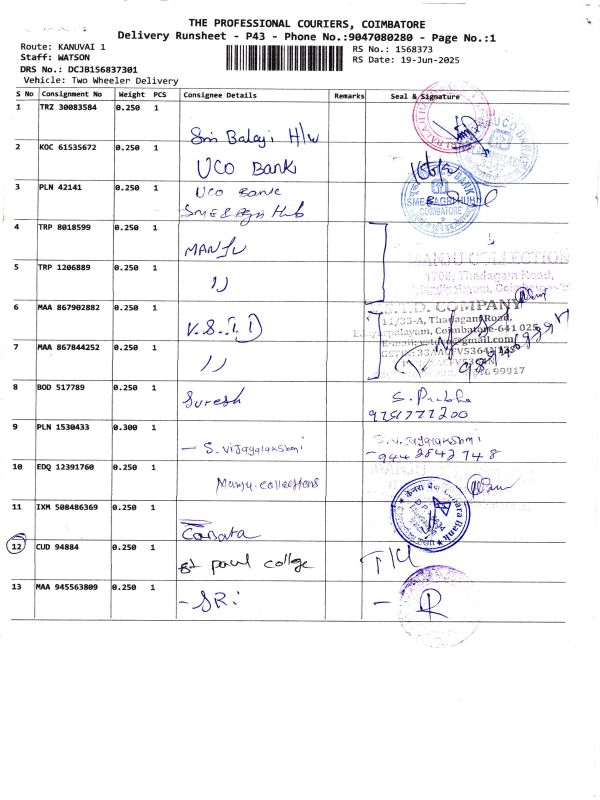 THE PROFESSIONAL COURIERS, COIMBATORE
Delivery Runsheet - P43 - Phone No.:9047080280 - Page No.:1
Route: KANUVAI 1
Staff: WATSON
DRS No.: DCJB156837301
Vehicle: Two Wheeler Delivery
RS No.: 1568373
RS Date: 19-Jun-2025
S No Consignment No Weight PCS Consignee Details Remarks Seal & Signature
1 TRZ 30083584 0.250 1 Sri Balaji H/w
2 KOC 61535672 0.250 1 UCO Bank
3 PLN 42141 0.250 1 UCO Bank
SME & Agri Hub
UCO BANK
SME & AGRI HUB
COIMBATORE
4 TRP 8018599 0.250 1 MANJU
MANJU COLLECTION
Thadagam Road,
5 TRP 1206889 0.250 1 11
6 MAA 867902882 0.250 1 V.S.I.D
COMPANY
11/33-A, Thadagam Road,
Coimbatore-641 025
7 MAA 867844252 0.250 1 11
99917
8 BOD 517789 0.250 1 Suresh
S. Prabha
9 PLN 1530433 0.300 1 - S. Vijayalakshmi
S. Vijayalakshmi
- 9442842748
10 EDQ 12391760 0.250 1 Manju collections
11 IXM 508486369 0.250 1 Canara
Canara Bank
12 CUD 94884 0.250 1 st paul college
13 MAA 945563809 0.250 1 - SRi